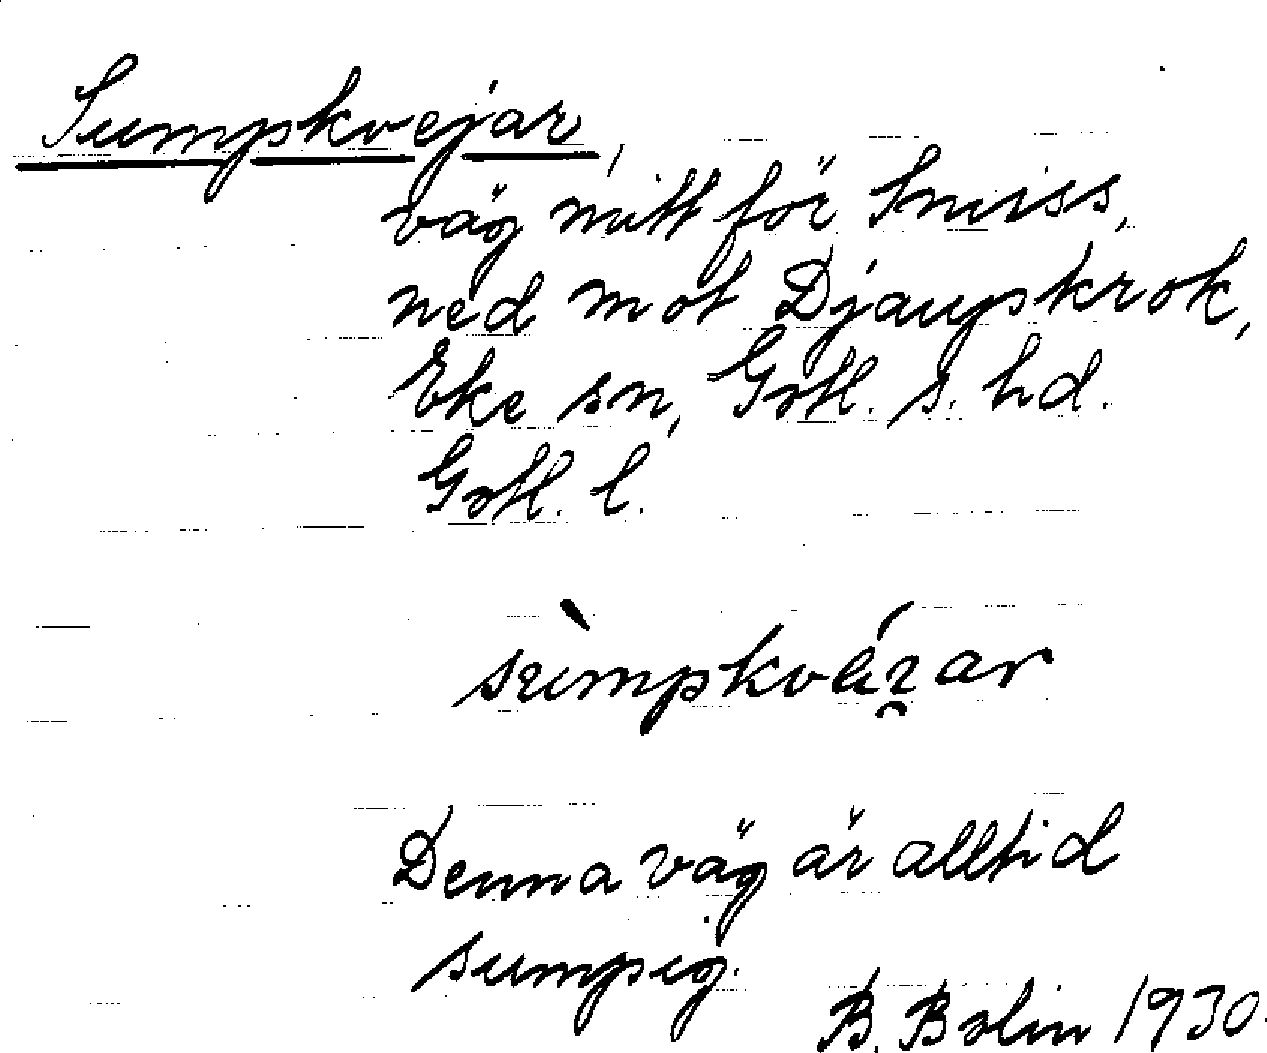 Sumpkvejar,
väg mitt för Smiss,
ned mot Djaupskrok,
Eke sn, Gotl. s. hd.
Gotl. l.
Denna väg är alltid
sumpig.
B. Bolin 1930.